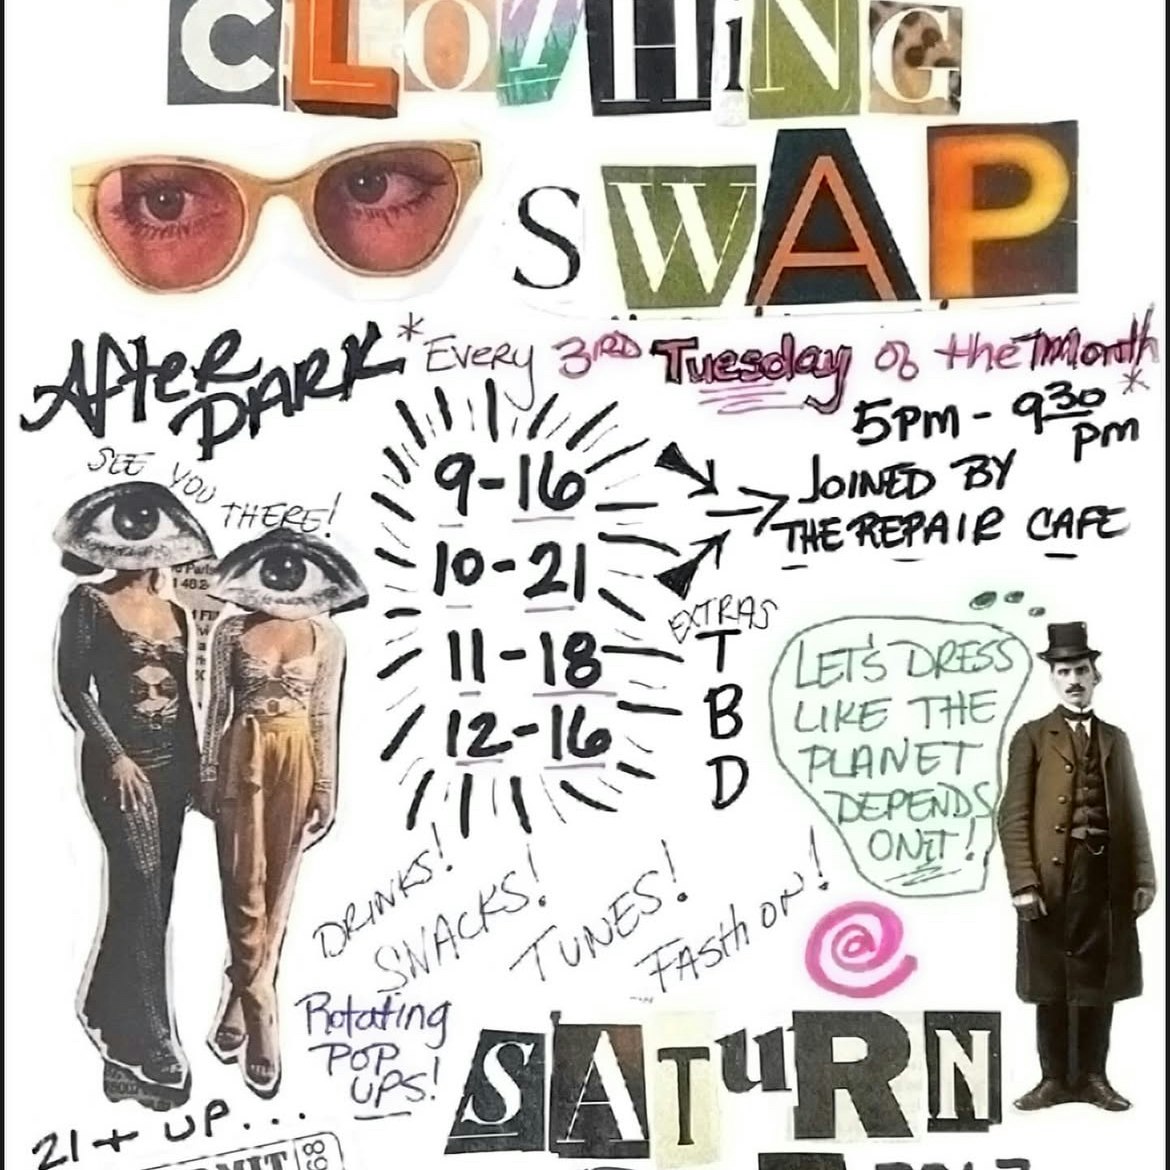 CLOTHiNG
SWAP
AfteR DARK
*Every 3RD Tuesday of the Month*
5pm - 9 30 pm
SEE YOU THERE!
9-16
10-21
11-18
12-16
JOINED BY
THE REPAIR CAFE
EXTRAS
TBD
LET'S DRESS
LIKE THE
PLANET
DEPENDS
ON iT!
DRINKS!
SNACKS!
TUNES!
FASHION!
@
Rotating
POP
UPS!
SATuRN
21+ UP...